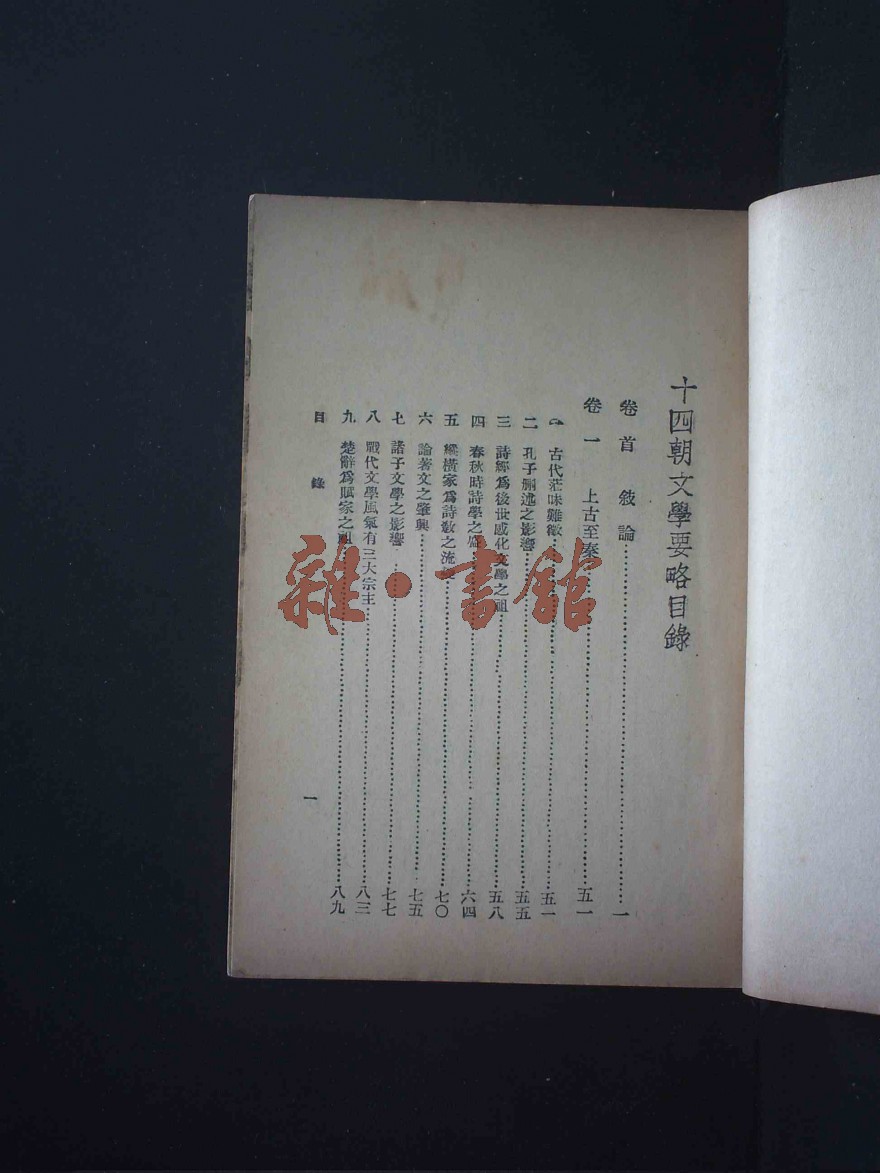 十四朝文學要略目錄
卷首 敍論…………一
卷一 上古至秦…………五一
一 古代茫昧難徵…………五一
二 孔子刪述之影響…………五五
三 詩經爲後世感化文學之祖…………五八
四 春秋時詩學之盛…………六四
五 縱橫家爲詩教之流…………七〇
六 論著文之肇興…………七五
七 諸子文學之影響…………七七
八 戰代文學風氣有三大宗主…………八三
九 楚辭爲賦家之祖…………八九
目錄 一
雜·書館